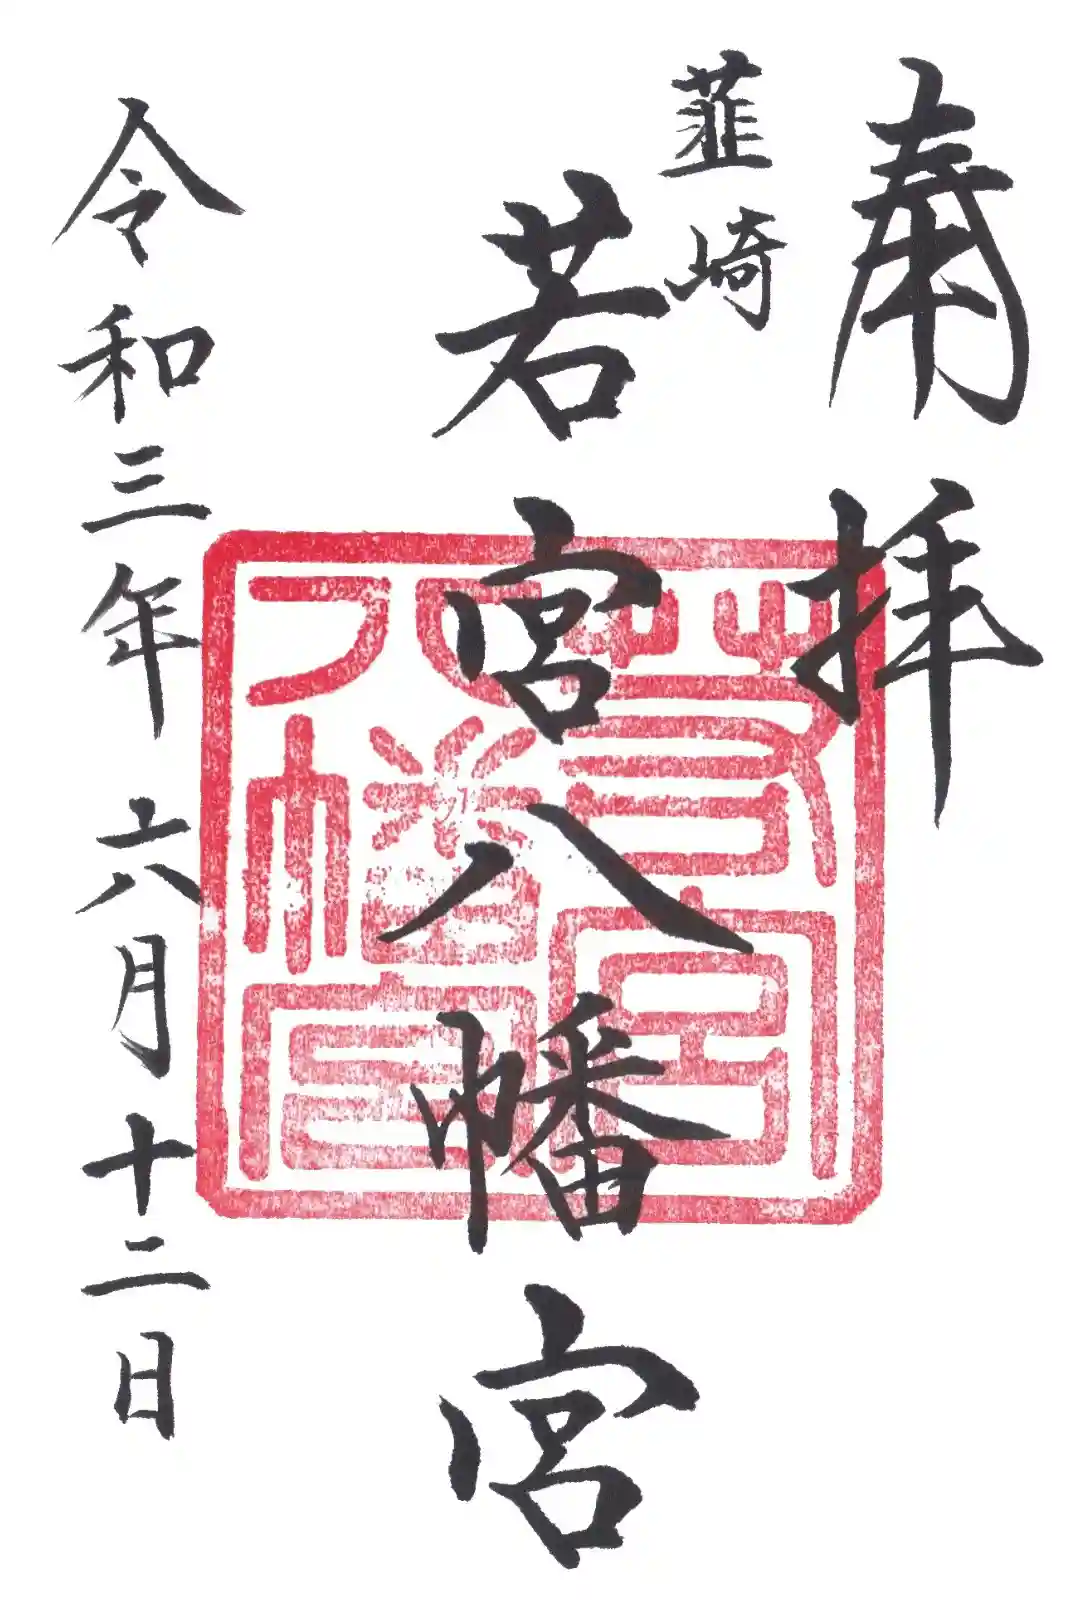 奉拝
韮崎
若宮八幡宮
若宮八幡宮
令和三年六月十二日